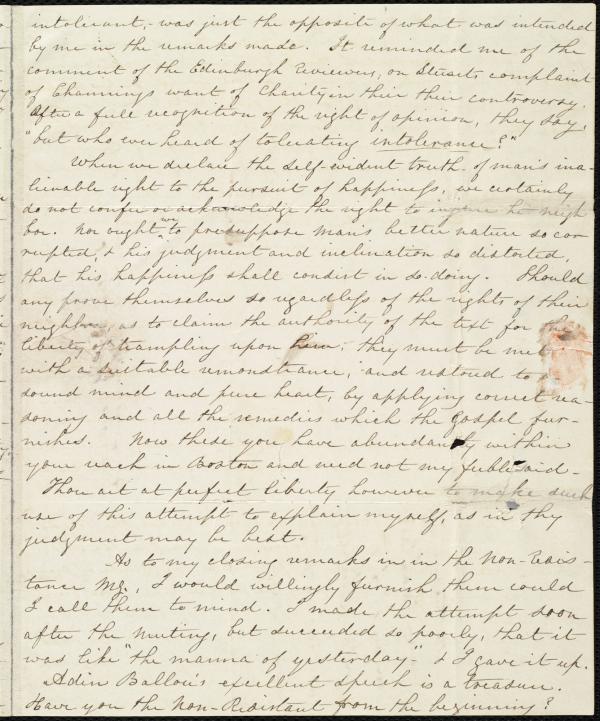 intolerant,- was just the opposite of what was intended
by me in the remarks made. It reminded me of the
comment of the Edinburgh Reviewers, on complaint
of Channing's want of Charity in their their controversy.
After a full recognition of the right of opinion, they say,
"but who ever heard of tolerating intolerance?"
When we declare the self-evident truth, of man's ina-
lienable right to the pursuit of happiness, we certainly
do not confer or acknowledge the right to injure his neigh
bor. Nor ought we to presuppose man's better nature so cor
rupted, & his judgment and inclination so distorted,
that his happiness shall consist in so-doing. Should
any prove themselves so regardless of the rights of their
neighbor, as to claim the authority of the text for the
liberty of trampling upon him; they must be met
with a suitable remonstrance, and restored to a
sound mind and pure heart, by applying correct rea-
soning and all the remedies which the Gospel fur-
nishes. Now these you have abundantly within
your reach in Boston and need not my feeble aid-
Thou art at perfect liberty however to make such
use of this attempt to explain myself, as in thy
judgment may be best.
As to my closing remarks in in the Non-Resis-
tance Mg., I would willingly furnish them could
I call them to mind. I made the attempt soon
after the meeting, but succeeded so poorly, that it
was like "the manna of yesterday"- & I gave it up.
Adin Ballou's excellent speech is a treasure.
Have you the Non-Resistant from the beginning?